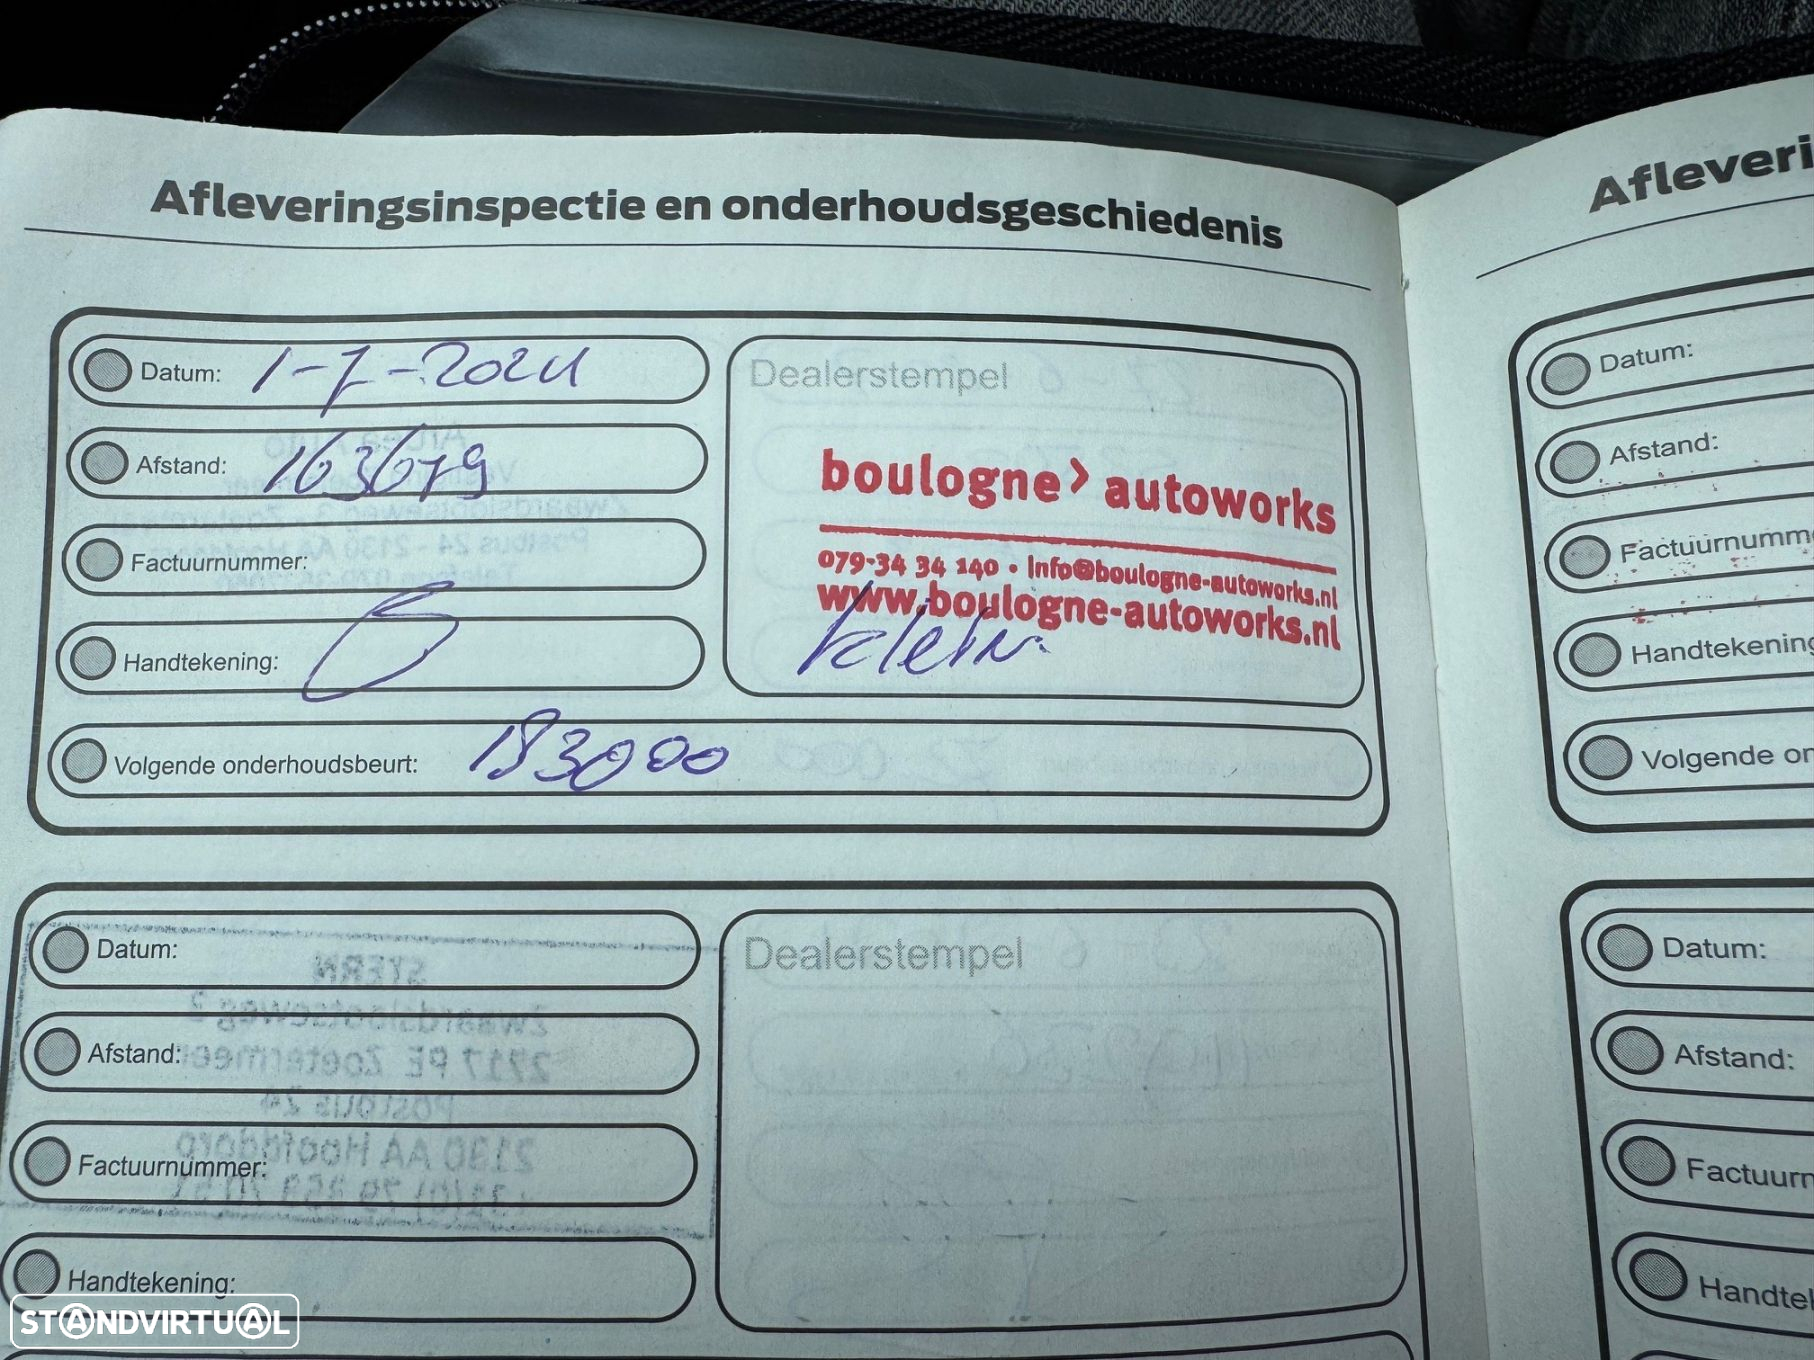 Afleveringsinspectie en onderhoudsgeschiedenis
Datum: 1-7-2024
Afstand: 163679
Factuurnummer:
Handtekening:
Dealerstempel
boulogne> autoworks
079-34 34 140 • Info@boulogne-autoworks.nl
www.boulogne-autoworks.nl
klein
Volgende onderhoudsbeurt: 183000
Datum:
Afstand:
Factuurnummer:
Handtekening:
Dealerstempel
Afleveri
Datum:
Afstand:
Factuurnumm
Handtekening
Volgende on
Datum:
Afstand:
Factuurn
Handte
STANDVIRTUAL